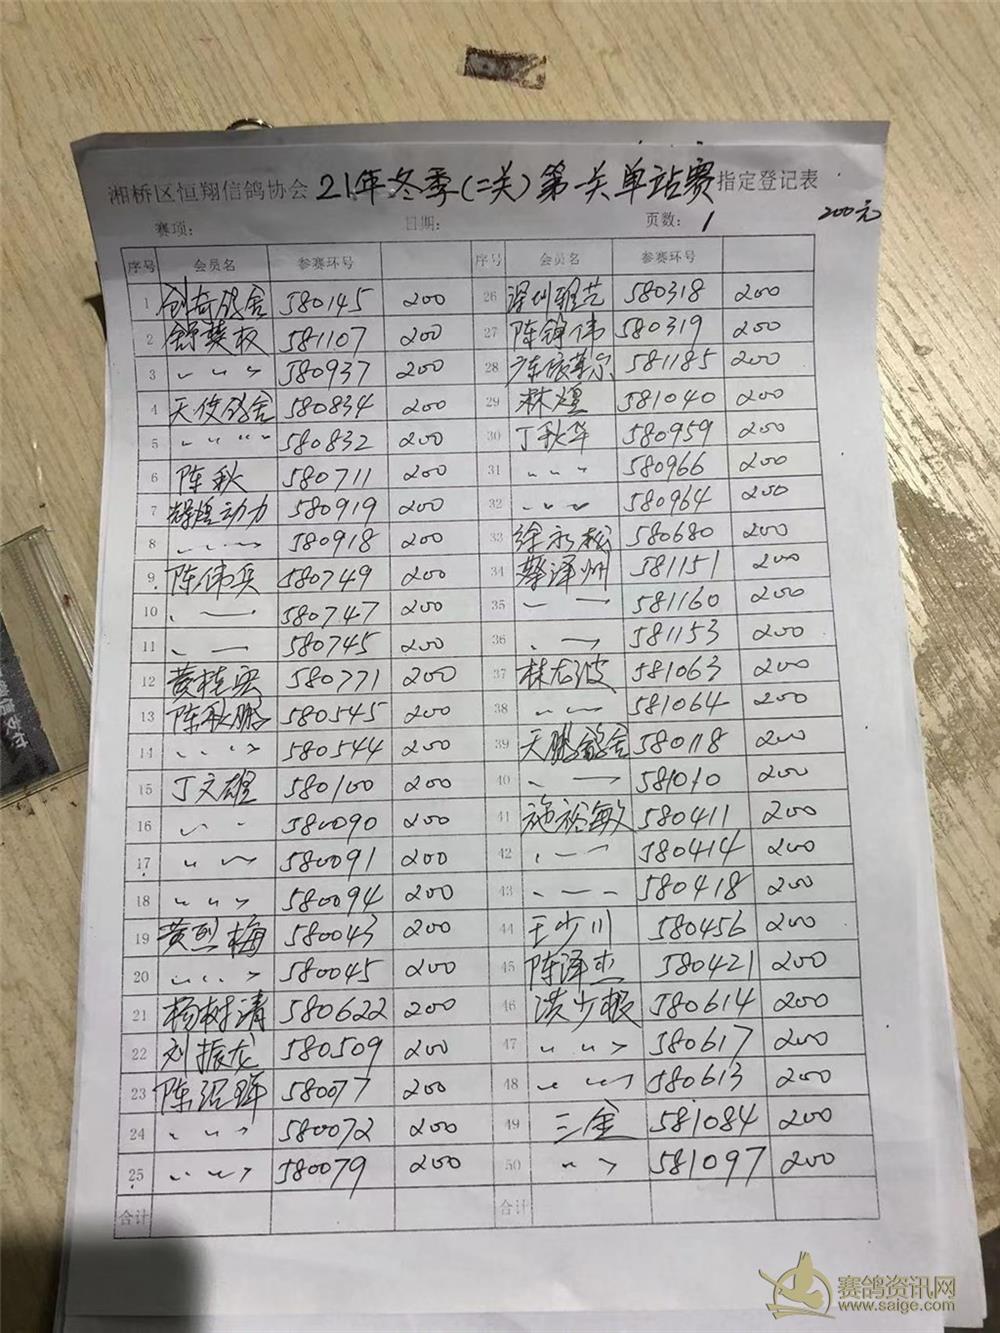 湘桥区恒翔信鸽协会 21年冬季(二关)第一关单站赛 指定登记表
赛项: 日期: 页数: 1 200元
序号 会员名 参赛环号 序号 会员名 参赛环号
1 创奇鸽舍 580145 200 26 深圳雅艺 580318 200
2 舒焕权 581107 200 27 陈锦伟 580319 200
3 〃 〃 〃 580937 200 28 581185 200
4 天使鸽舍 580834 200 29 林煌 581040 200
5 〃 〃 〃 〃 580832 200 30 丁秋华 580959 200
6 陈秋 580711 200 31 〃 〃 〃 580966 200
7 辉煌动力 580919 200 32 〃 〃 〃 580964 200
8 580918 200 33 徐永松 580680 200
9 陈伟兵 580749 200 34 蔡泽州 581151 200
10 580747 200 35 581160 200
11 580745 200 36 581153 200
12 黄桂宾 580771 200 37 林右波 581063 200
13 陈秋鹏 580545 200 38 581064 200
14 580544 200 39 天鹏鸽舍 580118 200
15 丁文雄 580100 200 40 581010 200
16 〃 〃 580090 200 41 施裕敏 580411 200
17 580091 200 42 580414 200
18 〃 〃 〃 580094 200 43 580418 200
19 黄烈梅 580043 200 44 王少川 580456 200
20 580045 200 45 陈泽杰 580421 200
21 杨树清 580622 200 46 洪少根 580614 200
22 刘振龙 580509 200 47 〃 〃 〃 580617 200
23 陈绍辉 580077 200 48 580613 200
24 〃 〃 〃 580072 200 49 三金 581084 200
25 〃 〃 〃 580079 200 50 〃 〃 581097 200
合计 合计
赛鸽资讯网
www.saige.com